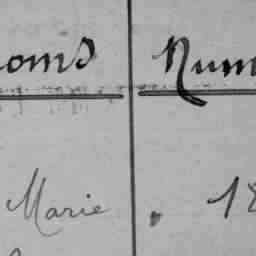 noms Num
Marie . 18